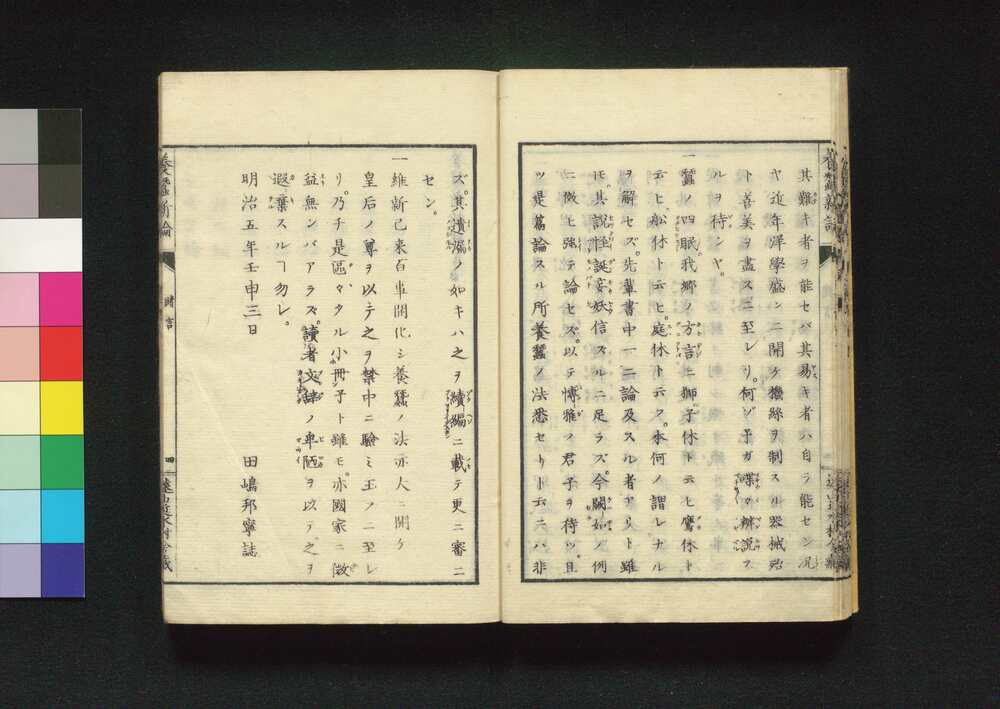 其難キ者ヲ能セバ其易キ者ハ自ラ能セン況
ヤ近年洋學盛ンニ開ケ機絲ヲ制スル器械殆
ト善美ヲ盡スニ至レリ。何ゾ予ガ喋々辨説ス
ルヲ待ンヤ。
一 蠶ノ四眠。我郷ノ方言ニ獅子休ト云ヒ鷹休ト
云ヒ舩休ト云ヒ。庭休ト云フ。本何ノ謂レナル
ヲ解セズ。先輩書中一二論及スル者アリト雖
モ。其説怪誕妄妖信スルニ足ラズ。今闕如ノ例
ニ倣ヒ強テ論セズ。以テ博雅ノ君子ヲ待ツ。且
ツ是篇論スル所養蠶ノ法悉セリト云ニハ非
ズ。其遺漏ノ如キハ之ヲ續編ニ載テ更ニ審ニ
セン。
一 維新已来百事開化シ養蠶ノ法亦大ニ開ケ
皇后ノ尊ヲ以テ之ヲ禁中ニ驗ミ玉フニ至レ
リ。乃チ是區々タル小冊子ト雖モ。亦國家ニ微
益無ンバアラズ。讀者文辞ノ卑陋ヲ以テ。之ヲ
遐棄スルヿ勿レ。
明治五年壬申三日
田嶋邦寧誌
養蠶新論
緒言
四